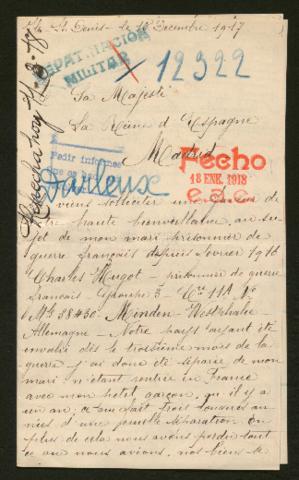 St Denis - le 18 Decembre 1917
REPATRIACION
MILITAR
12322
Sa Majesté
La Reine d'Espagne
Madrid
Fecho
18 ENE. 1918
Pedir informes
Darleux
viens solliciter une faveur de
votre haute bienveillance, au su-
jet de mon mari prisonnier de
guerre français depuis février 1916
Charles Hugot - prisonnier de guerre
français
Minden - Westphalie
Allemagne - Notre pays ayant été
envahi dès le troisième mois de la
guerre j'ai donc été séparée de mon
mari n'étant rentrée en France
avec mon petit garçon, qu'il y a
un an; ce qui fait trois longues an
nées d'une pénible séparation. En
plus de cela nous avons perdu tout
ce que nous avions, nos biens se